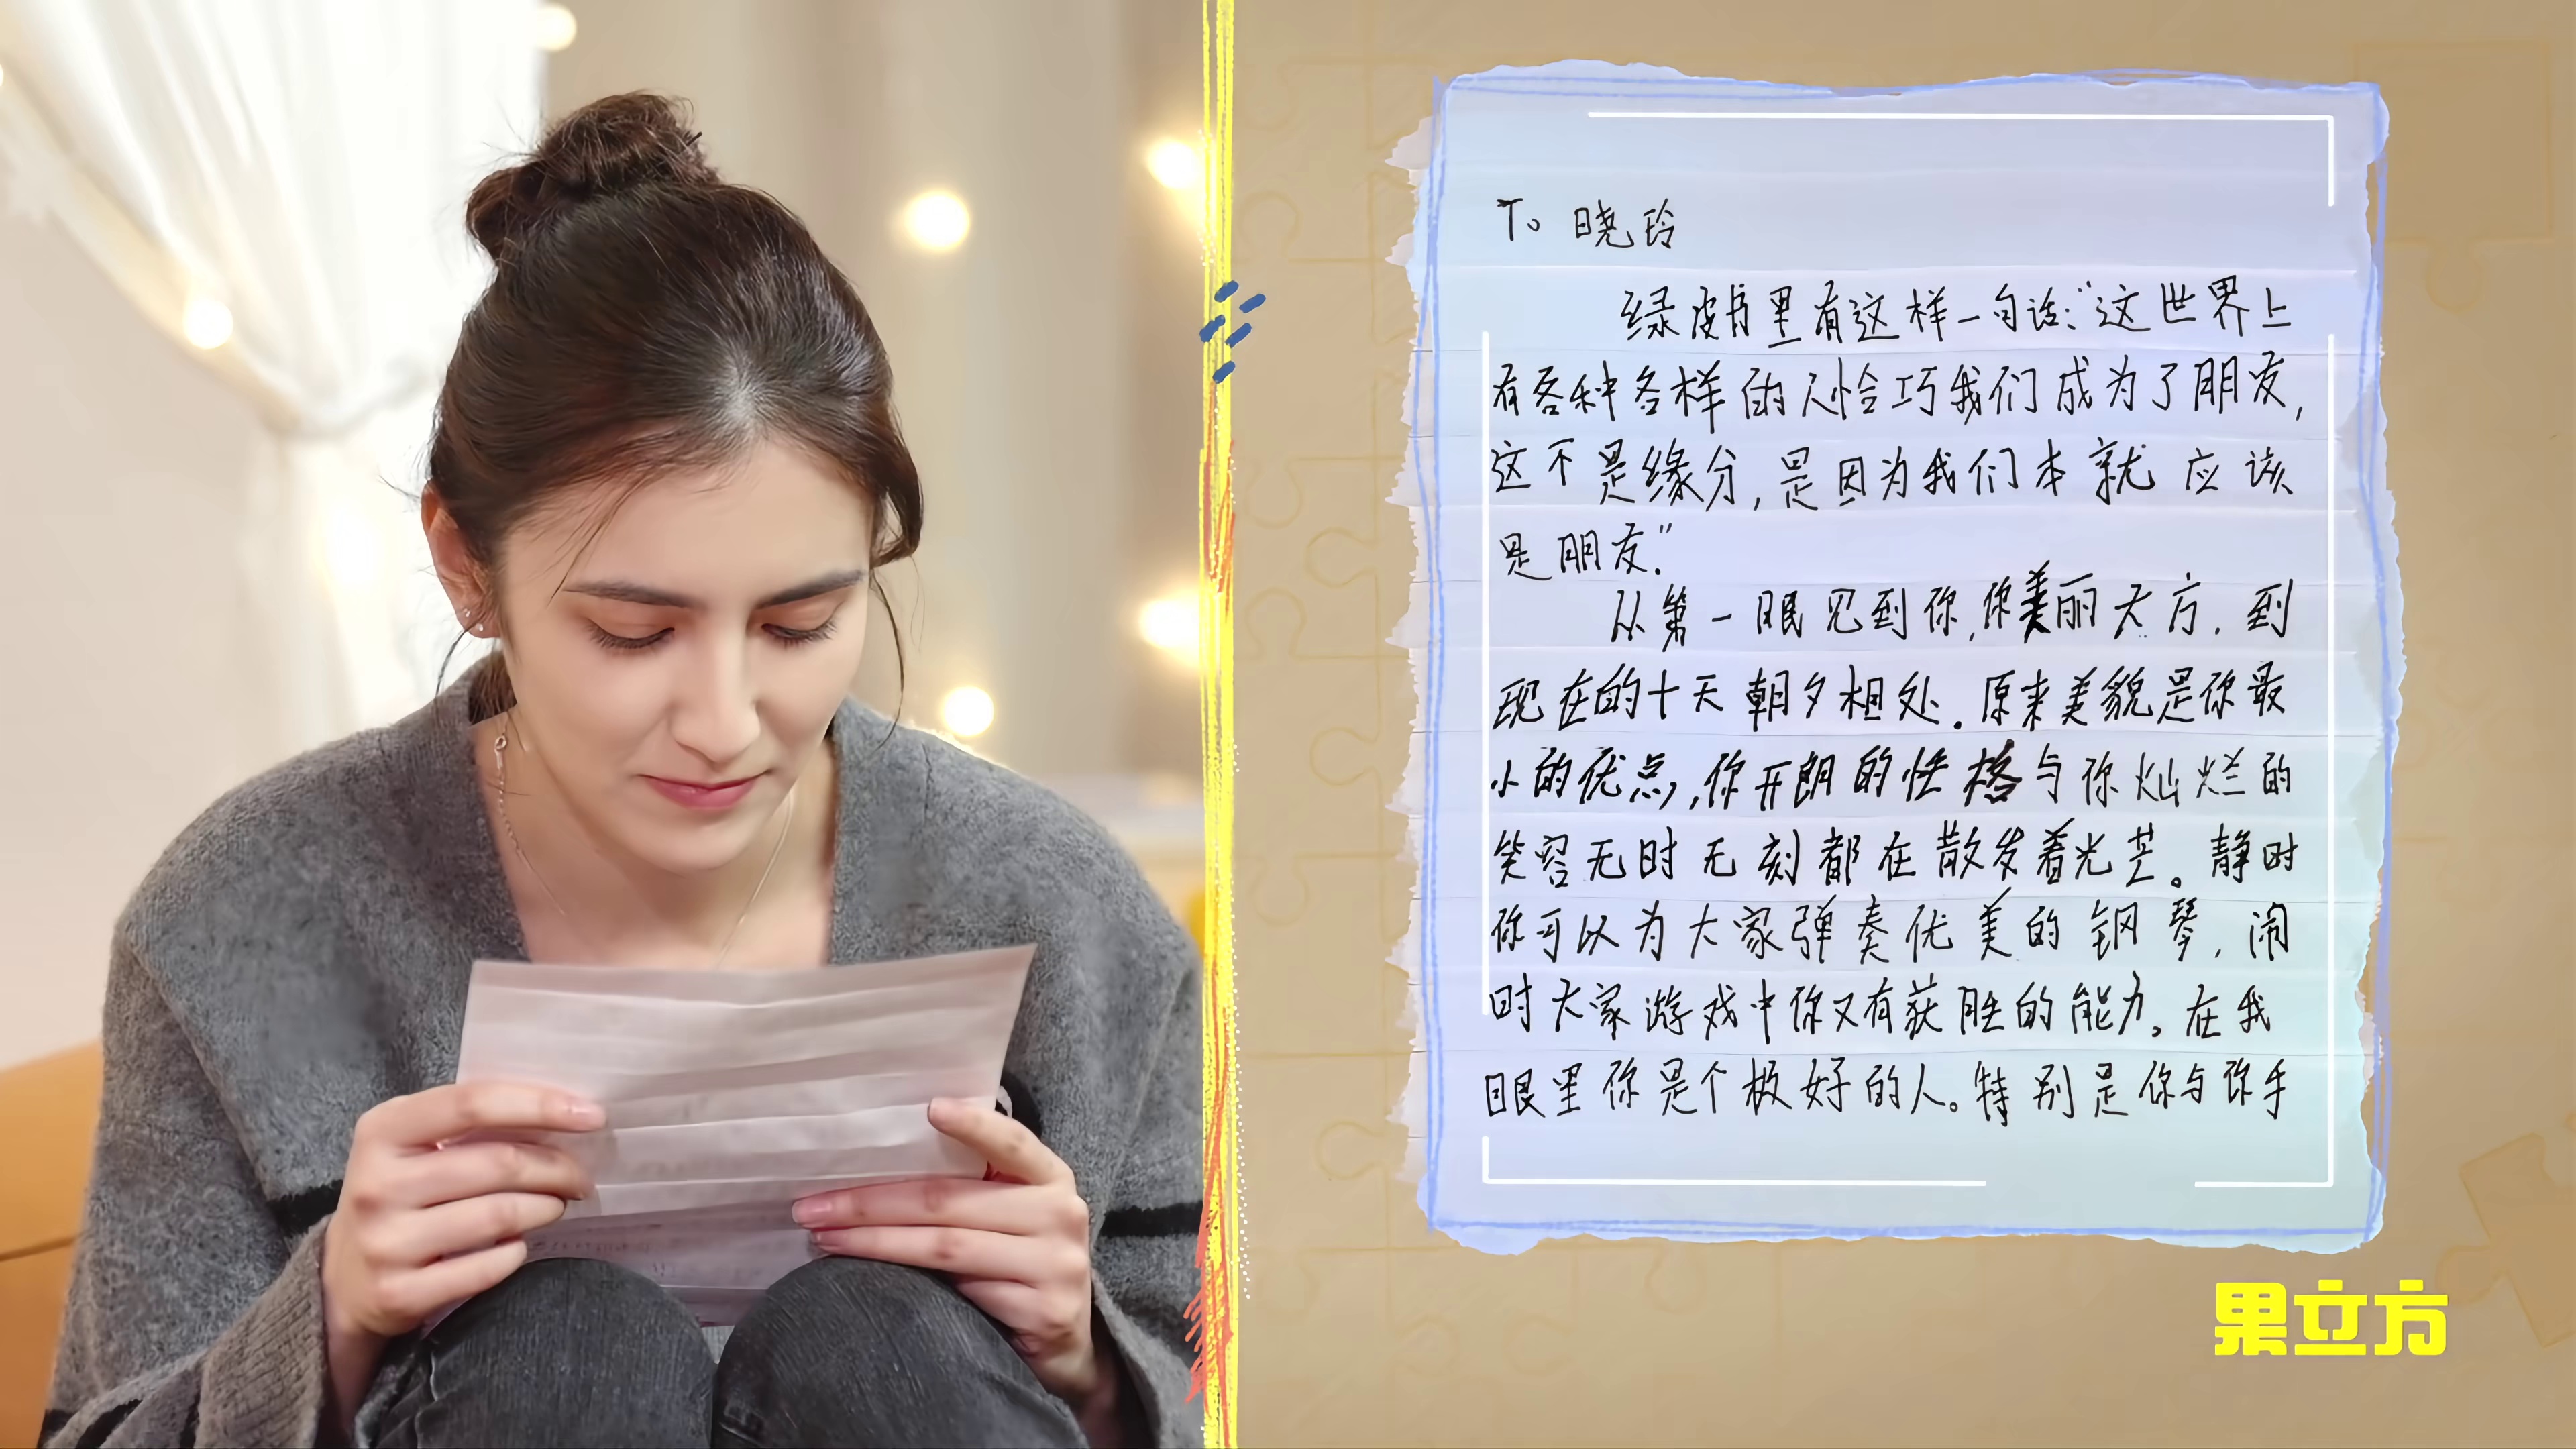 To 晓玲
绿皮书里有这样一句话:“这世界上
有各种各样的人恰巧我们成为了朋友,
这不是缘分,是因为我们本就应该
是朋友.”
从第一眼见到你,你美丽大方.到
现在的十天朝夕相处.原来美貌是你最
小的优点,你开朗的性格与你灿烂的
笑容无时无刻都在散发着光芒。静时
你可以为大家弹奏优美的钢琴,闹
时大家游戏中你又有获胜的能力。在我
眼里你是个极好的人。特别是你与你手
果立方